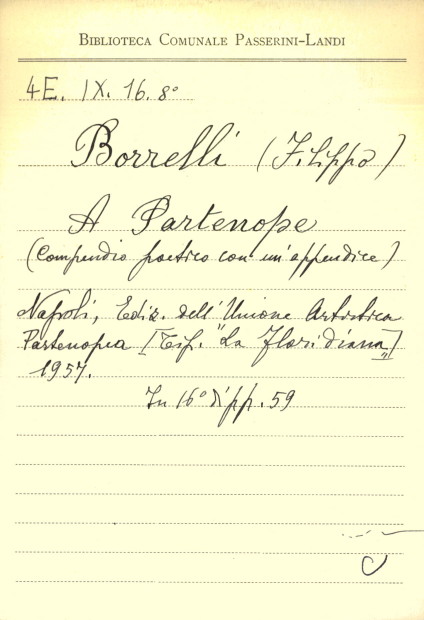 BIBLIOTECA COMUNALE PASSERINI-LANDI
4E. IX. 16. 8°
Borrelli (Filippo)
A Partenope
(Compendio poetico con un'appendice)
Napoli, Ediz. dell'Unione Artistica
Partenopea [Tip. "La Floridiana„]
1957.
In 16° di pp. 59